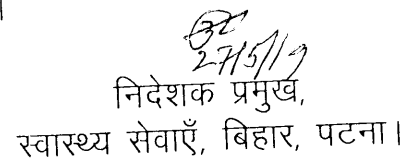 27/5/19
निदेशक प्रमुख,
स्वास्थ्य सेवाएँ, बिहार, पटना।